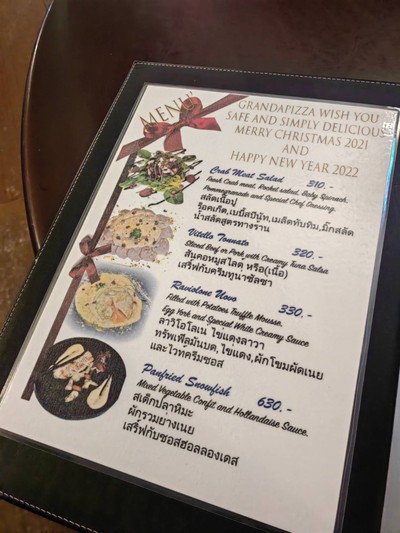 MENU
GRANDAPIZZA WISH YOU
SAFE AND SIMPLY DELICIOUS
MERRY CHRISTMAS 2021
AND
HAPPY NEW YEAR 2022
Crab Meat Salad 310.-
Fresh Crab meat, Rocket salad, Baby Spinach,
Pommegranade and Special Chef Dressing.
สลัดเนื้อปู
ร็อตเก็ต,เบบี้สปีนัท,เมล็ดทับทิม,มิกสลัด
น้ำสลัดสูตรทางร้าน
Vitello Tonnato 320.-
Sliced Beef or Pork with Creamy Tuna Salsa
สันคอหมูสไลด์ หรือ(เนื้อ)
เสริ์ฟกับครีมทูน่าซัลซา
Raviolone Uovo 330.-
Filled with Potatoes Truffle Mousse,
Egg York and Special White Creamy Sauce
ลาวิโอโลเน่ ไข่แดงลาวา
ทรัฟเฟิลมันบด,ไข่แดง,ผักโขมผัดเนย
และไวทครีมซอส
Panfried Snowfish 630.-
Mixed Vegetable Confit and Hollandaise Sauce.
สเต็กปลาหิมะ
ผักรวมย่างเนย
เสริ์ฟกับซอสฮอลลองเดส